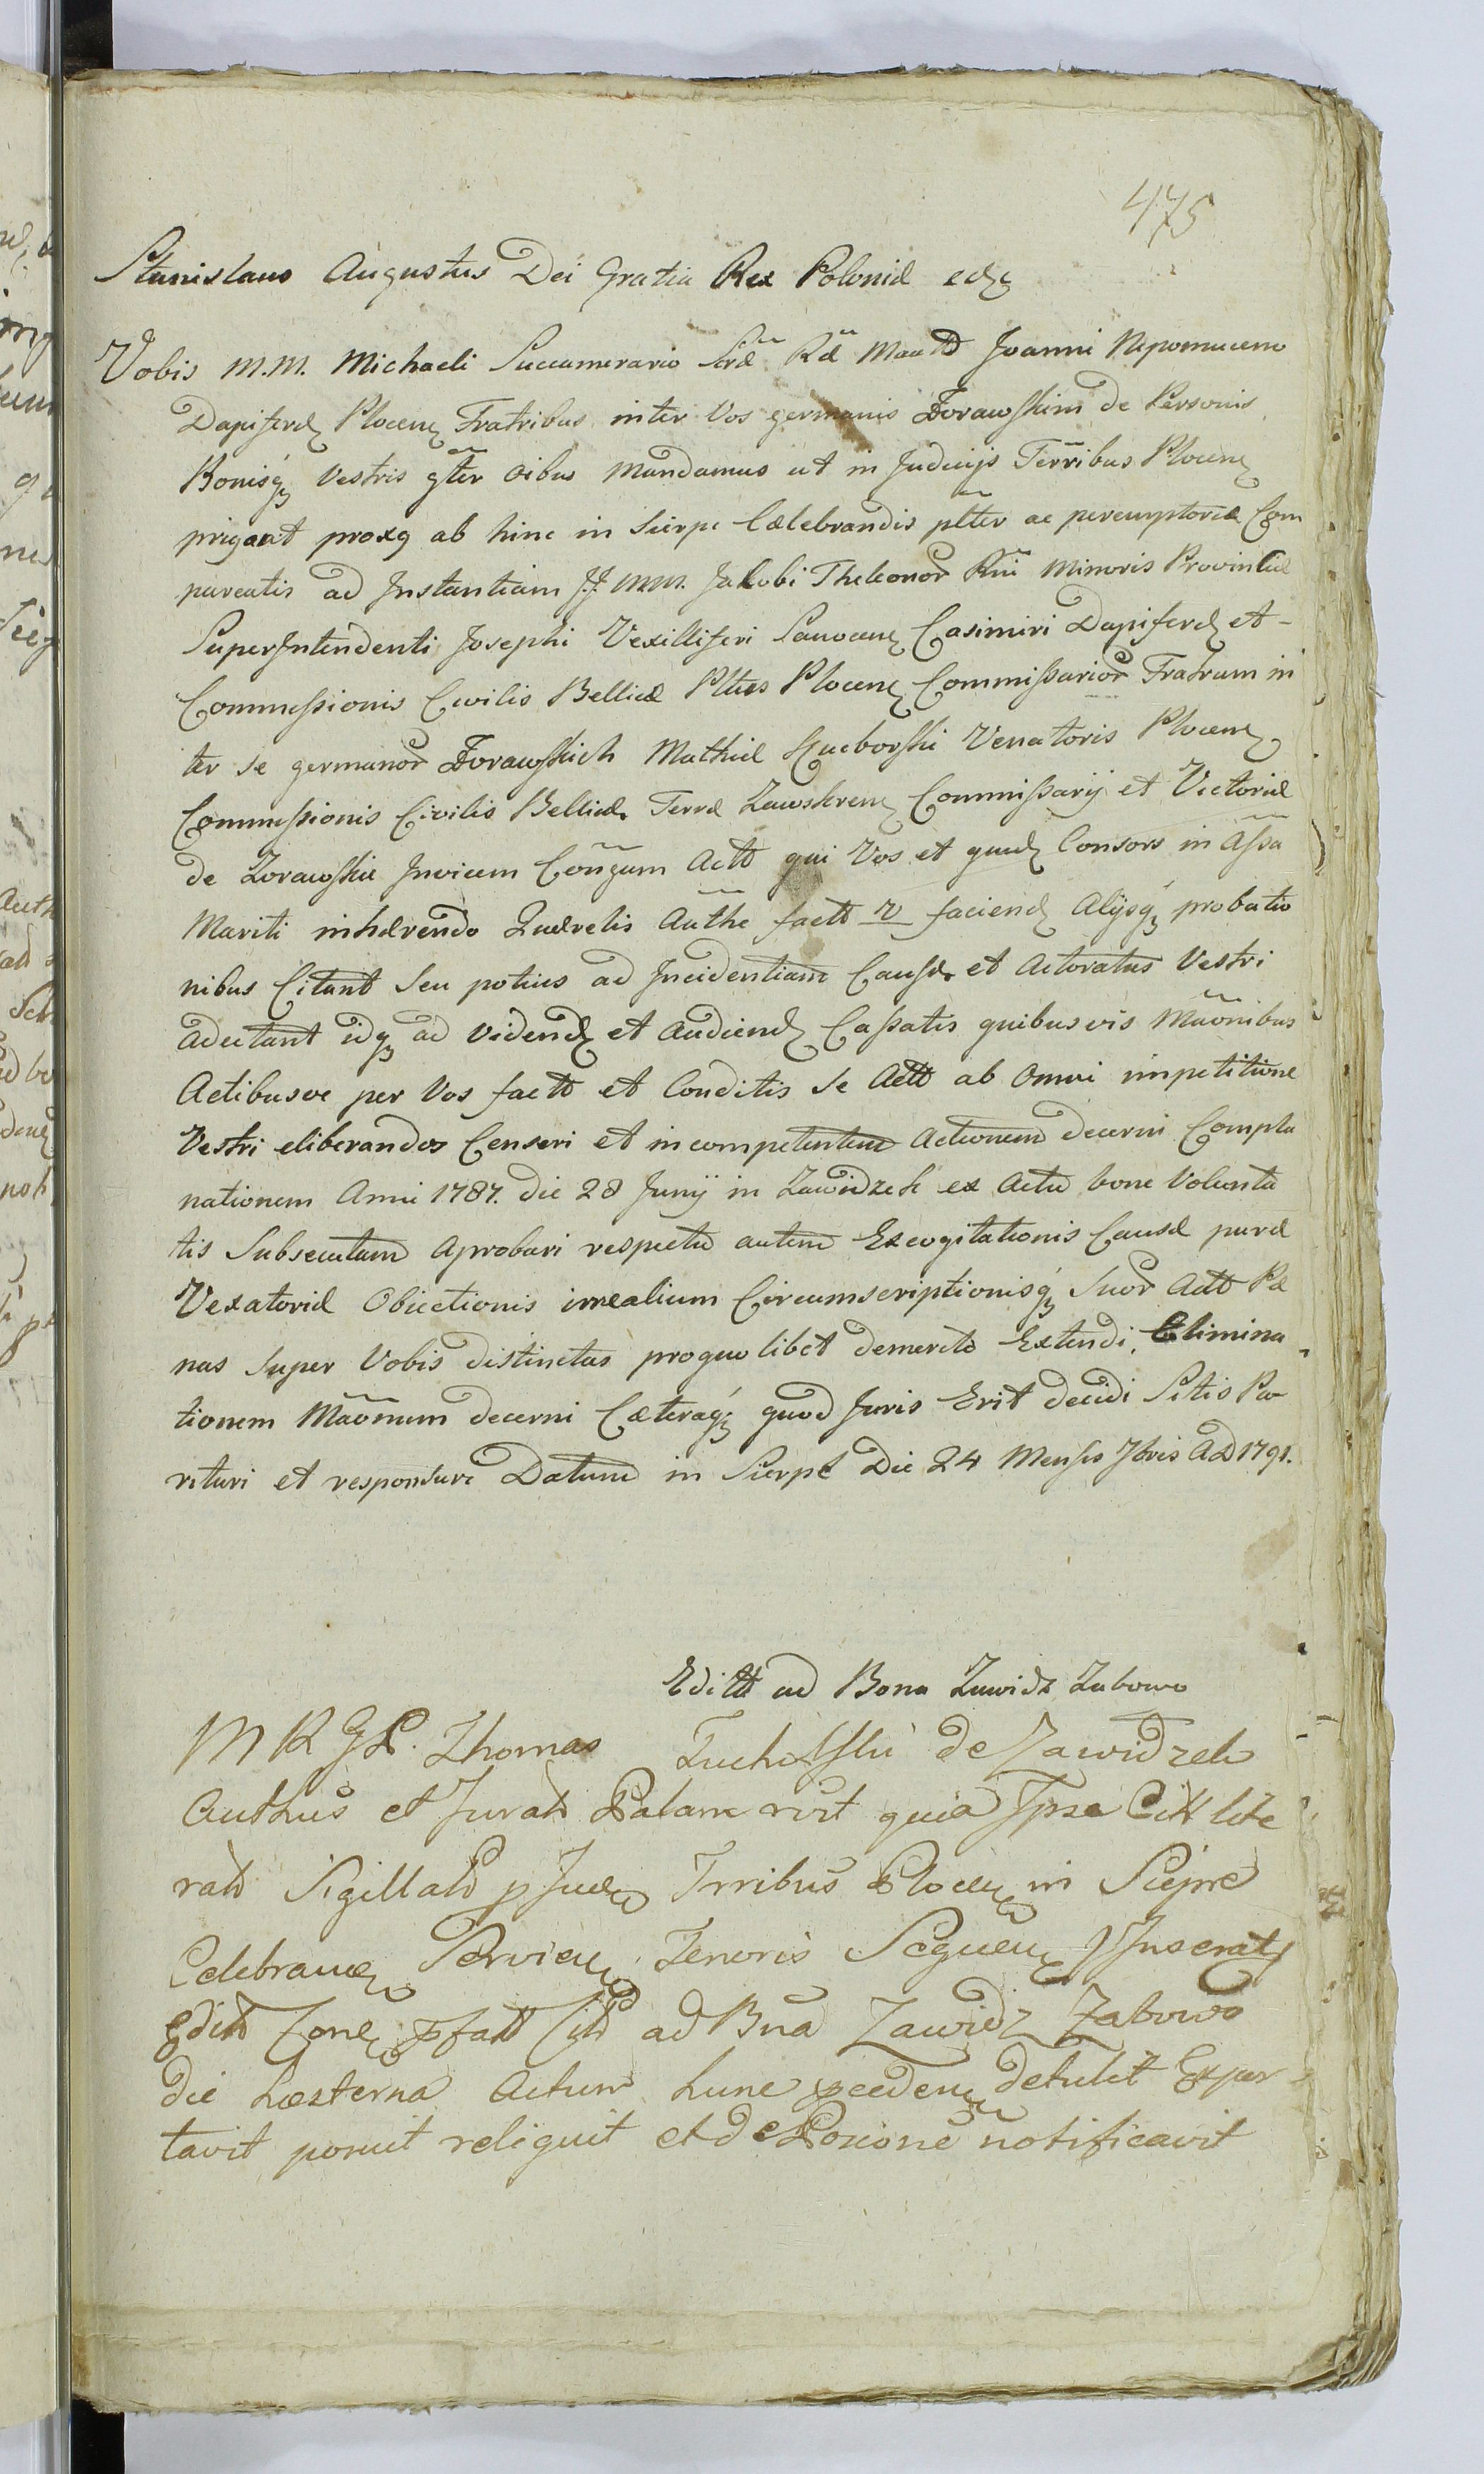 475
Stanislaus Augustus Dei Gratia Rex Poloniæ
Vobis M.M. Michaeli Succamerario Sræ Ræ Joanni Nepomuceno
Dapifero Plocen Fratribus inter Vos germanis Zorawskim de Personis
Bonisq Vestris gter oibus Mandamus ut in Judicijs Terribus Plocen
ab hinc in Sierpc Cælebrandis plter ac peremptorie Com
pareatis ad Instantiam J.J. M.M. Jakobi Minoris Provinciæ
SuperIntendenti Josephi Vexilliferi Casimiri Dapifero et -
Commissionis Civilis Bellicæ Pttus Plocen Commissarior Fratrum in
ter se germanor Zorawskich Mathiæ Venatoris Plocen
Commissionis Civilis Bellicæ Terræ Zawskren Commissarij et Victoriæ
de Zorawskie Invicem Conjgum Actt qui Vos et quid Consors in Assa
Mariti inhærendo Quærelis Authe factt faciend Alijsq probatio
nibus Citant Seu potius ad Incidentiam Causæ et Actoratus Vestri
Adcitant idq ad Videnđ et Audiend Cassatis quibusvis Maōnibus
Actibusve per Vos factt et Conditis Se Actt ab Omni impetitione
Vestri eliberandos Censeri et incompetentem Actionem decerni Compla
nationem Anni 1787. die 28 Junij in Zawidzek ex Actu bone Volunta
tis Subsecutam Aprobari respectu autem Excogitationis Causæ puræ
Vexatoriæ Obiectionis irrealium Circumscriptionisq Suor Actt Pæ
nas Super Vobis distinctas proquolibet demerito Extendi, Elimina
tionem Maōnum decerni Cæteraq quod Juris Erit decidi Sitis Pa
rituri et responsuri Datum in Sierpc Die 24 Mensis 7bris AD 1791.
Editt ad Bona Zawidz Zabowo
M R G P. Thomas Tucholski de Zawidzek
Authus et Jurats Palam quia Ipse Citt lite
rats Sigillats p Jud Trribus Plocen in Sierpc
Celebran Servien Tenoris Sequen Inserats
Edits ad Bna Zawidz Zabowo
die hæsterna Actum hunc detulit Expor
tavit posuit reliquit et de Poicione notificavit